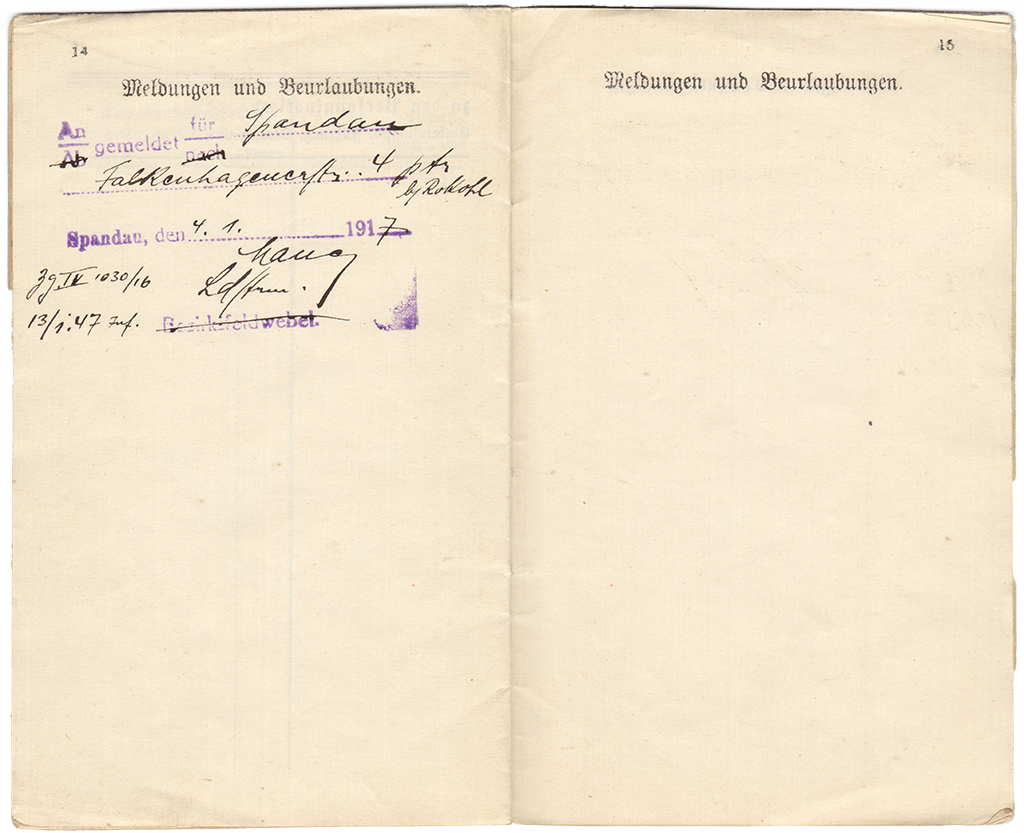 14
Meldungen und Beurlaubungen.
An für Spandau
Ab gemeldet nach
Falkenhagenerstr. 4 ptr
b/ Rokohl
Spandau, den 4. 1. 1917
Ldstrm.
Zg. IV 1030/16
13/1.47
Bezirksfeldwebel.
15
Meldungen und Beurlaubungen.